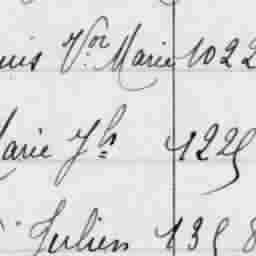 uis Vor Marie 1022
Marie Jh 1225
Julien 1358